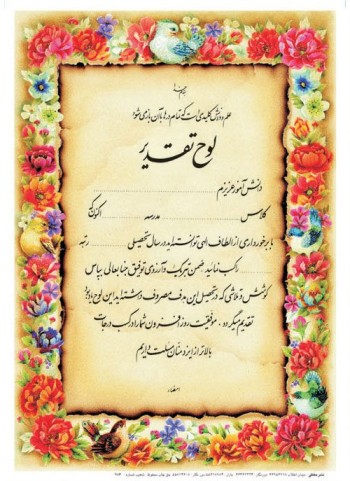 علم و دانش کلیدی است که تمام درها با آن باز می شود
لوح تقدیر
دانش آموز عزیزم
کلاس مدرسه اکنون که
با برخورداری از الطاف الهی توانسته اید در سال تحصیلی رتبه
را کسب نمائید ضمن تبریک و آرزوی توفیق جنابعالی بپاس
کوشش و تلاشی که در تحصیل این هدف مصروف داشته اید این لوح یادبود
تقدیم میگردد . موفقیت روز افزون شما را در کسب درجات
بالاتر از ایزد منان مسئلت داریم
امضاء